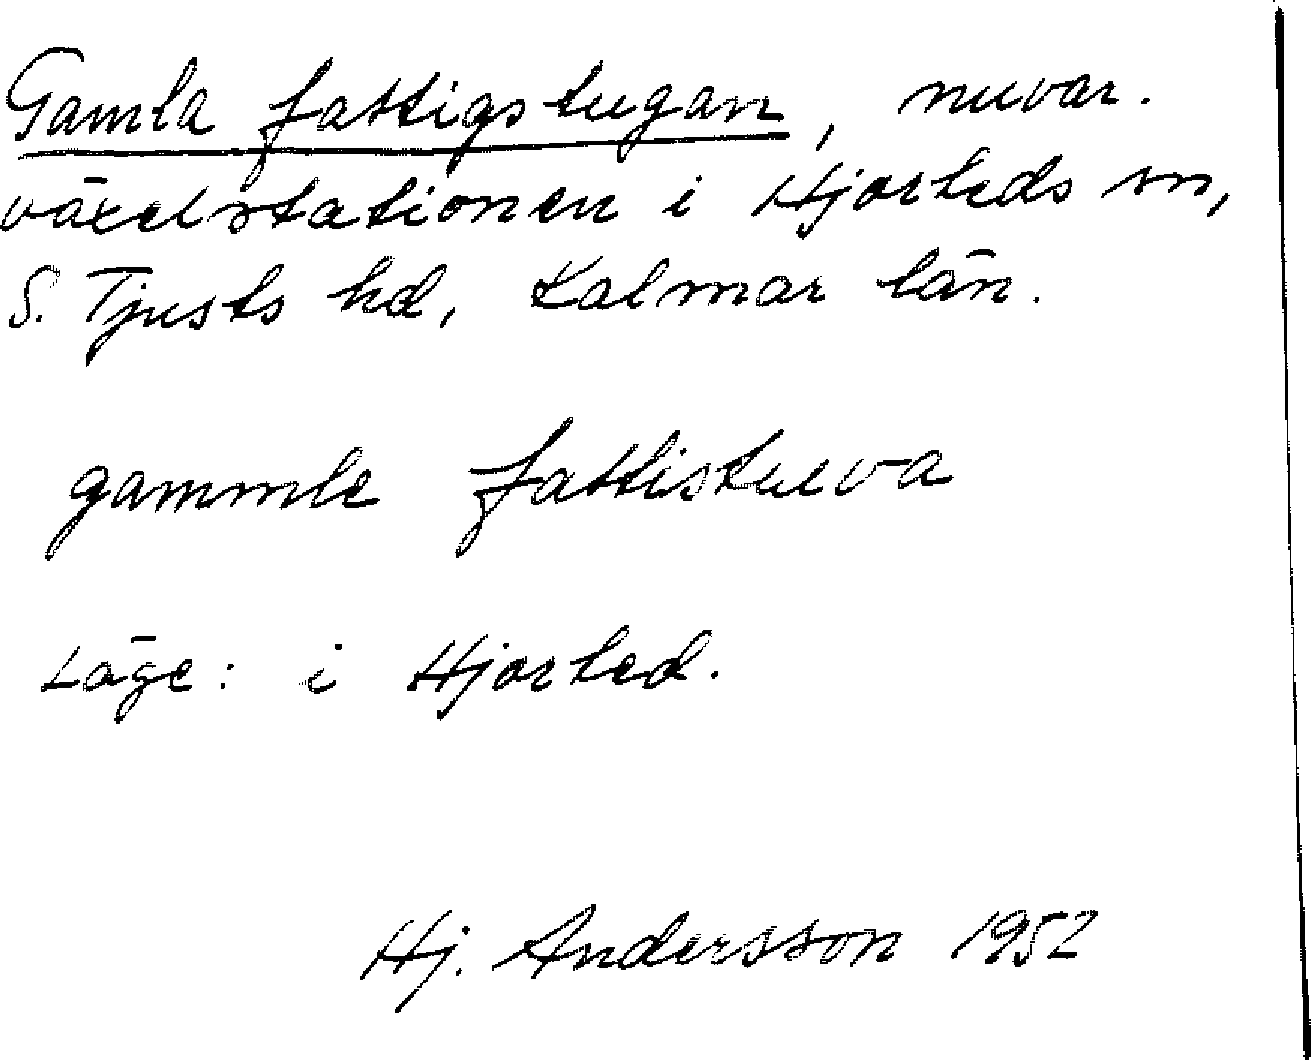 Gamla fattigstugan, nuvar.
växelstationen i Hjorteds sn,
S. Tjusts hd, Kalmar län.
gammle fattistuva
Läge: i Hjorted.
Hj. Andersson 1952